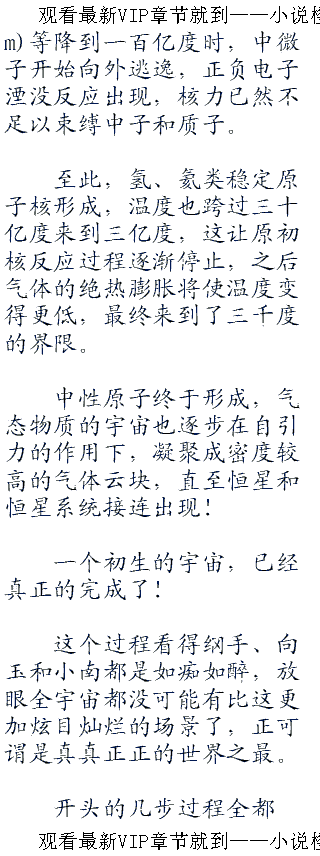 观看最新VIP章节就到——小说
m)等降到一百亿度时，中微
子开始向外逃逸，正负电子
湮没反应出现，核力已然不
足以束缚中子和质子。
至此，氢、氦类稳定原
子核形成，温度也跨过三十
亿度来到三亿度，这让原初
核反应过程逐渐停止，之后
气体的绝热膨胀将使温度变
得更低，最终来到了三千度
的界限。
中性原子终于形成，气
态物质的宇宙也逐步在自引
力的作用下，凝聚成密度较
高的气体云块，直至恒星和
恒星系统接连出现！
一个初生的宇宙，已经
真正的完成了！
这个过程看得纲手、向
玉和小南都是如痴如醉，放
眼全宇宙都没可能有比这更
加炫目灿烂的场景了，正可
谓是真真正正的世界之最。
开头的几步过程全都
观看最新VIP章节就到——小说